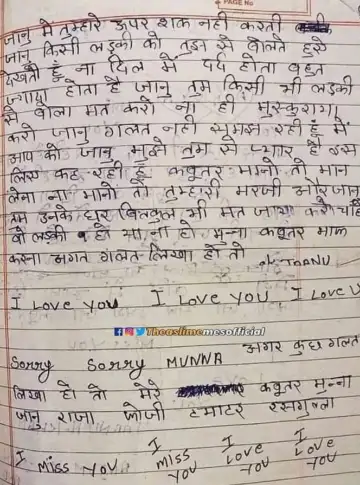 PAGE No
जानु मे तुम्हारे ऊपर शक नही करती
जान किसी लड़की को तुझ से बोलते हुऐ
देखती हूँ ना दिल में दर्द होता बहुत
ज्यादा होता है जानु तुम किसी भी लड़की
से बोला मत करो ना ही मुस्कुराया
करो जानु गलत नही समझ रही हूँ में
आप को जानु मुझे तुम से प्यार है इस
लिए कह रही हूँ कबुतर मानो तो मान
लेना ना मानो तो तुम्हारी मरजी और जान
तुम उनके घर बिलकुल भी मत जाया करो चाहे
वो लड़की हो या ना हो मुन्ना कबुतर माफ
करना अगत गलत लिखा हो तो
JAANU
I Love you I Love you, I Love U
Theaslimemesofficial
Sorry Sorry MUNNA अगर कुछ गलत
लिखा हो तो मेरे कबुतर मुन्ना
जानु राजा जोजी टमाटर रसगुल्ला
I Miss you I Miss you I Love you I Love you